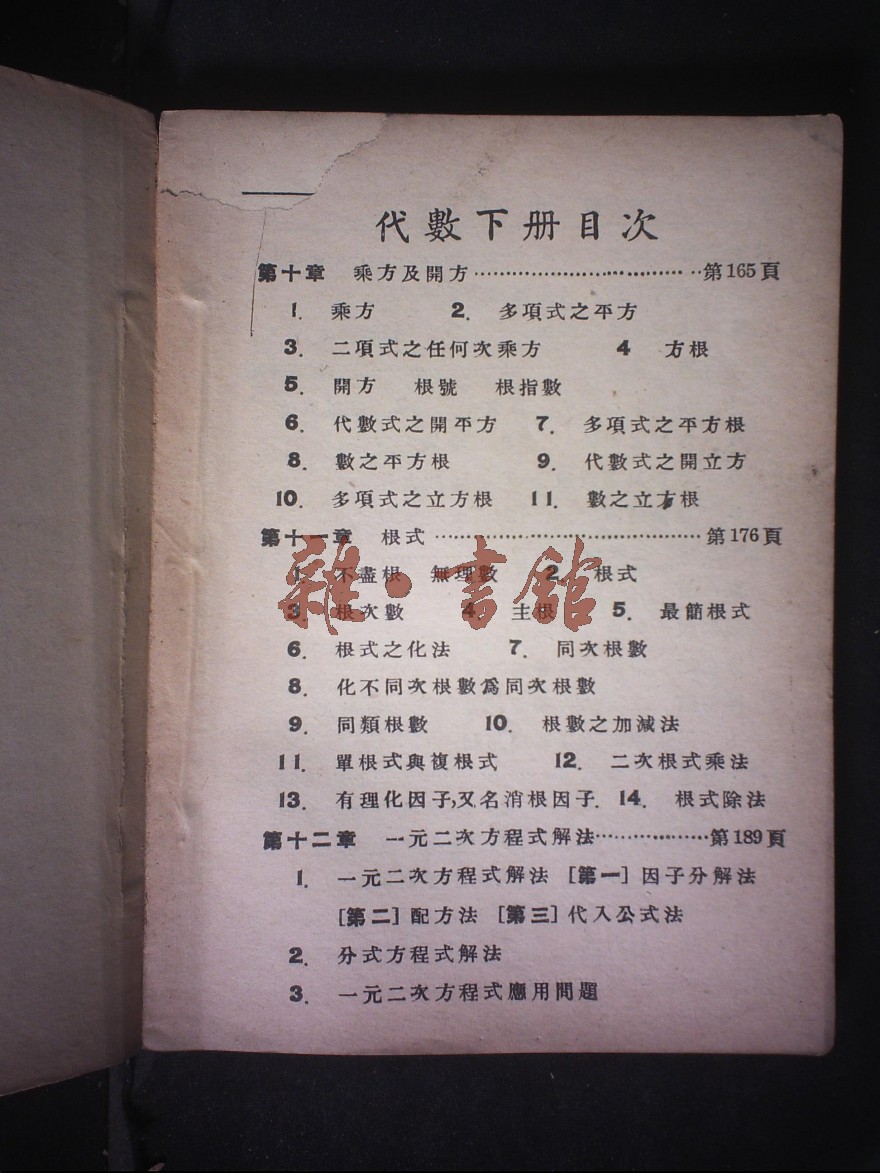 代數下册目次
第十章 乘方及開方………………………………第165頁
1. 乘方 2. 多項式之平方
3. 二項式之任何次乘方 4 方根
5. 開方 根號 根指數
6. 代數式之開平方 7. 多項式之平方根
8. 數之平方根 9. 代數式之開立方
10. 多項式之立方根 11. 數之立方根
第十一章 根式………………………………第176頁
1. 不盡根 無理數 2. 根式
3. 根次數 4. 主根 5. 最簡根式
6. 根式之化法 7. 同次根數
8. 化不同次根數爲同次根數
9. 同類根數 10. 根數之加減法
11. 單根式與複根式 12. 二次根式乘法
13. 有理化因子,又名消根因子. 14. 根式除法
第十二章 一元二次方程式解法………………第189頁
1. 一元二次方程式解法 [第一]因子分解法
[第二]配方法 [第三]代入公式法
2. 分式方程式解法
3. 一元二次方程式應用問題
雜·書館